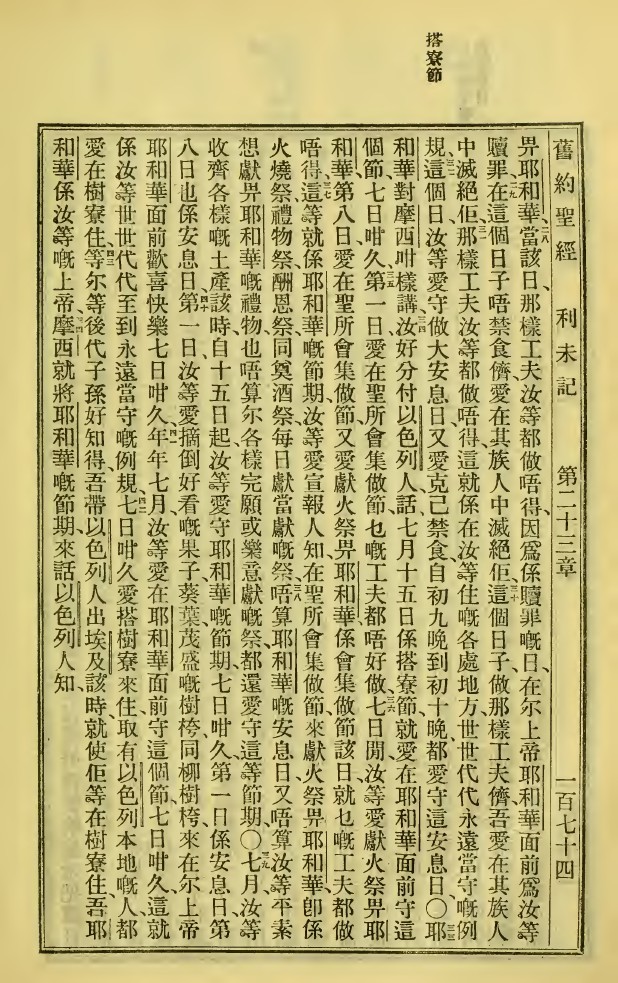 搭寮節
舊約聖經　利未記　第二十三章　一百七十四
畀耶和華、二八當該日、那樣工夫汝等都做唔得、因爲係贖罪嘅日、在尔上帝耶和華面前爲汝等
贖罪、二九在這個日子唔禁食儕、愛在其族人中滅絕佢、三十這個日子、做那樣工夫儕、吾愛在其族人
中滅絕佢、三一那樣工夫汝等都做唔得、這就係在汝等住嘅各處地方世世代代永遠當守嘅例
規、三二這個日汝等愛守做大安息日、又愛克己禁食、自初九晚到初十晚、都愛守這安息日、〇三三耶
和華對摩西咁樣講、三四汝好分付以色列人話、七月十五日係搭寮節、就愛在耶和華面前守這
個節、七日咁久、三五第一日愛在聖所會集做節、乜嘅工夫都唔好做、三六七日閒汝等愛獻火祭畀耶
和華、第八日愛在聖所會集做節、又愛獻火祭畀耶和華、係會集做節該日、就乜嘅工夫都做
唔得、三七這等就係耶和華嘅節期、汝等愛宣報人知、在聖所會集做節、來獻火祭畀耶和華、卽係
火燒祭、禮物祭、酬恩祭、同奠酒祭、每日獻當獻嘅祭、三八唔算耶和華嘅安息日、又唔算汝等平素
想獻畀耶和華嘅禮物、也唔算尔各樣完願或樂意獻嘅祭、都還愛守這等節期、〇三九七月、汝等
收齊各樣嘅土產該時、自十五日起、汝等愛守耶和華嘅節期、七日咁久、第一日係安息日、第
八日也係安息日、四十第一日、汝等愛摘倒好看嘅果子、葵葉、茂盛嘅樹椦、同柳樹椦、來在尔上帝
耶和華面前歡喜快樂七日咁久、四一年年七月汝等愛在耶和華面前守這個節、七日咁久、這就
係汝等世世代代至到永遠當守嘅例規、四二七日咁久愛搭樹寮來住、取有以色列本地嘅人、都
愛在樹寮住、四三等尔等後代子孫好知得、吾帶以色列人出埃及該時、就使佢等在樹寮住、吾耶
和華係汝等嘅上帝、四四摩西就將耶和華嘅節期、來話以色列人知、